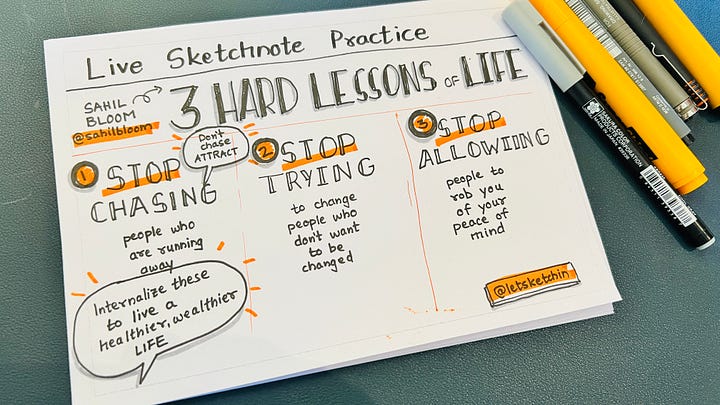 Live Sketchnote Practice
SAHIL
BLOOM
@sahilbloom
3 HARD LESSONS OF LIFE
1 STOP
CHASING
Don't
chase
ATTRACT
people who
are running
away
Internalize these
to live a
healthier, wealthier
LIFE
2 STOP
TRYING
to change
people who
don't want
to be
changed
3 STOP
ALLOWING
people to
rob you
of your
peace of
mind
@letsketchin
SAKURA COLOR
PRODUCTS CORPORATION